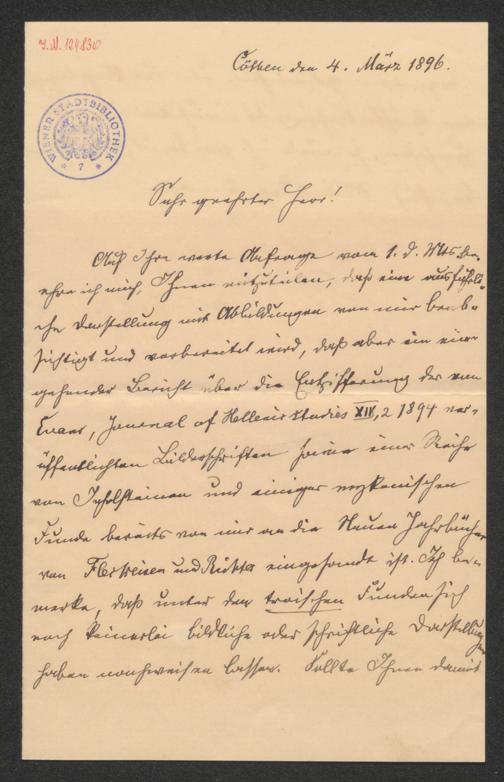 J.N. 124830
WIENER STADTBIBLIOTHEK
* 7 *
Cöthen den 4. März 1896.
Sehr geehrter Herr!
Auf Ihre werte Anfrage vom 1. d. Mts. be-
ehre ich mich, Ihnen mitzuteilen, daß eine ausführli-
che Darstellung mit Abbildungen von mir beab-
sichtigt und vorbereitet wird, daß aber ein ein-
gehender Bericht über die Entzifferung der von
Evans, Journal of Hellenic Studies XIV, 2 1894 ver-
öffentlichten Bilderschriften sowie einer Reihe
von Inselsteinen und einiger mykenischen
Funde bereits von mir an die Neuen Jahrbücher
von Fleckeisen und Richter eingesandt ist. Ich be-
merke, daß unter den troischen Funden sich
noch keinerlei bildliche oder schriftliche Darstellungen
haben nachweisen lassen. Sollte Ihnen damit